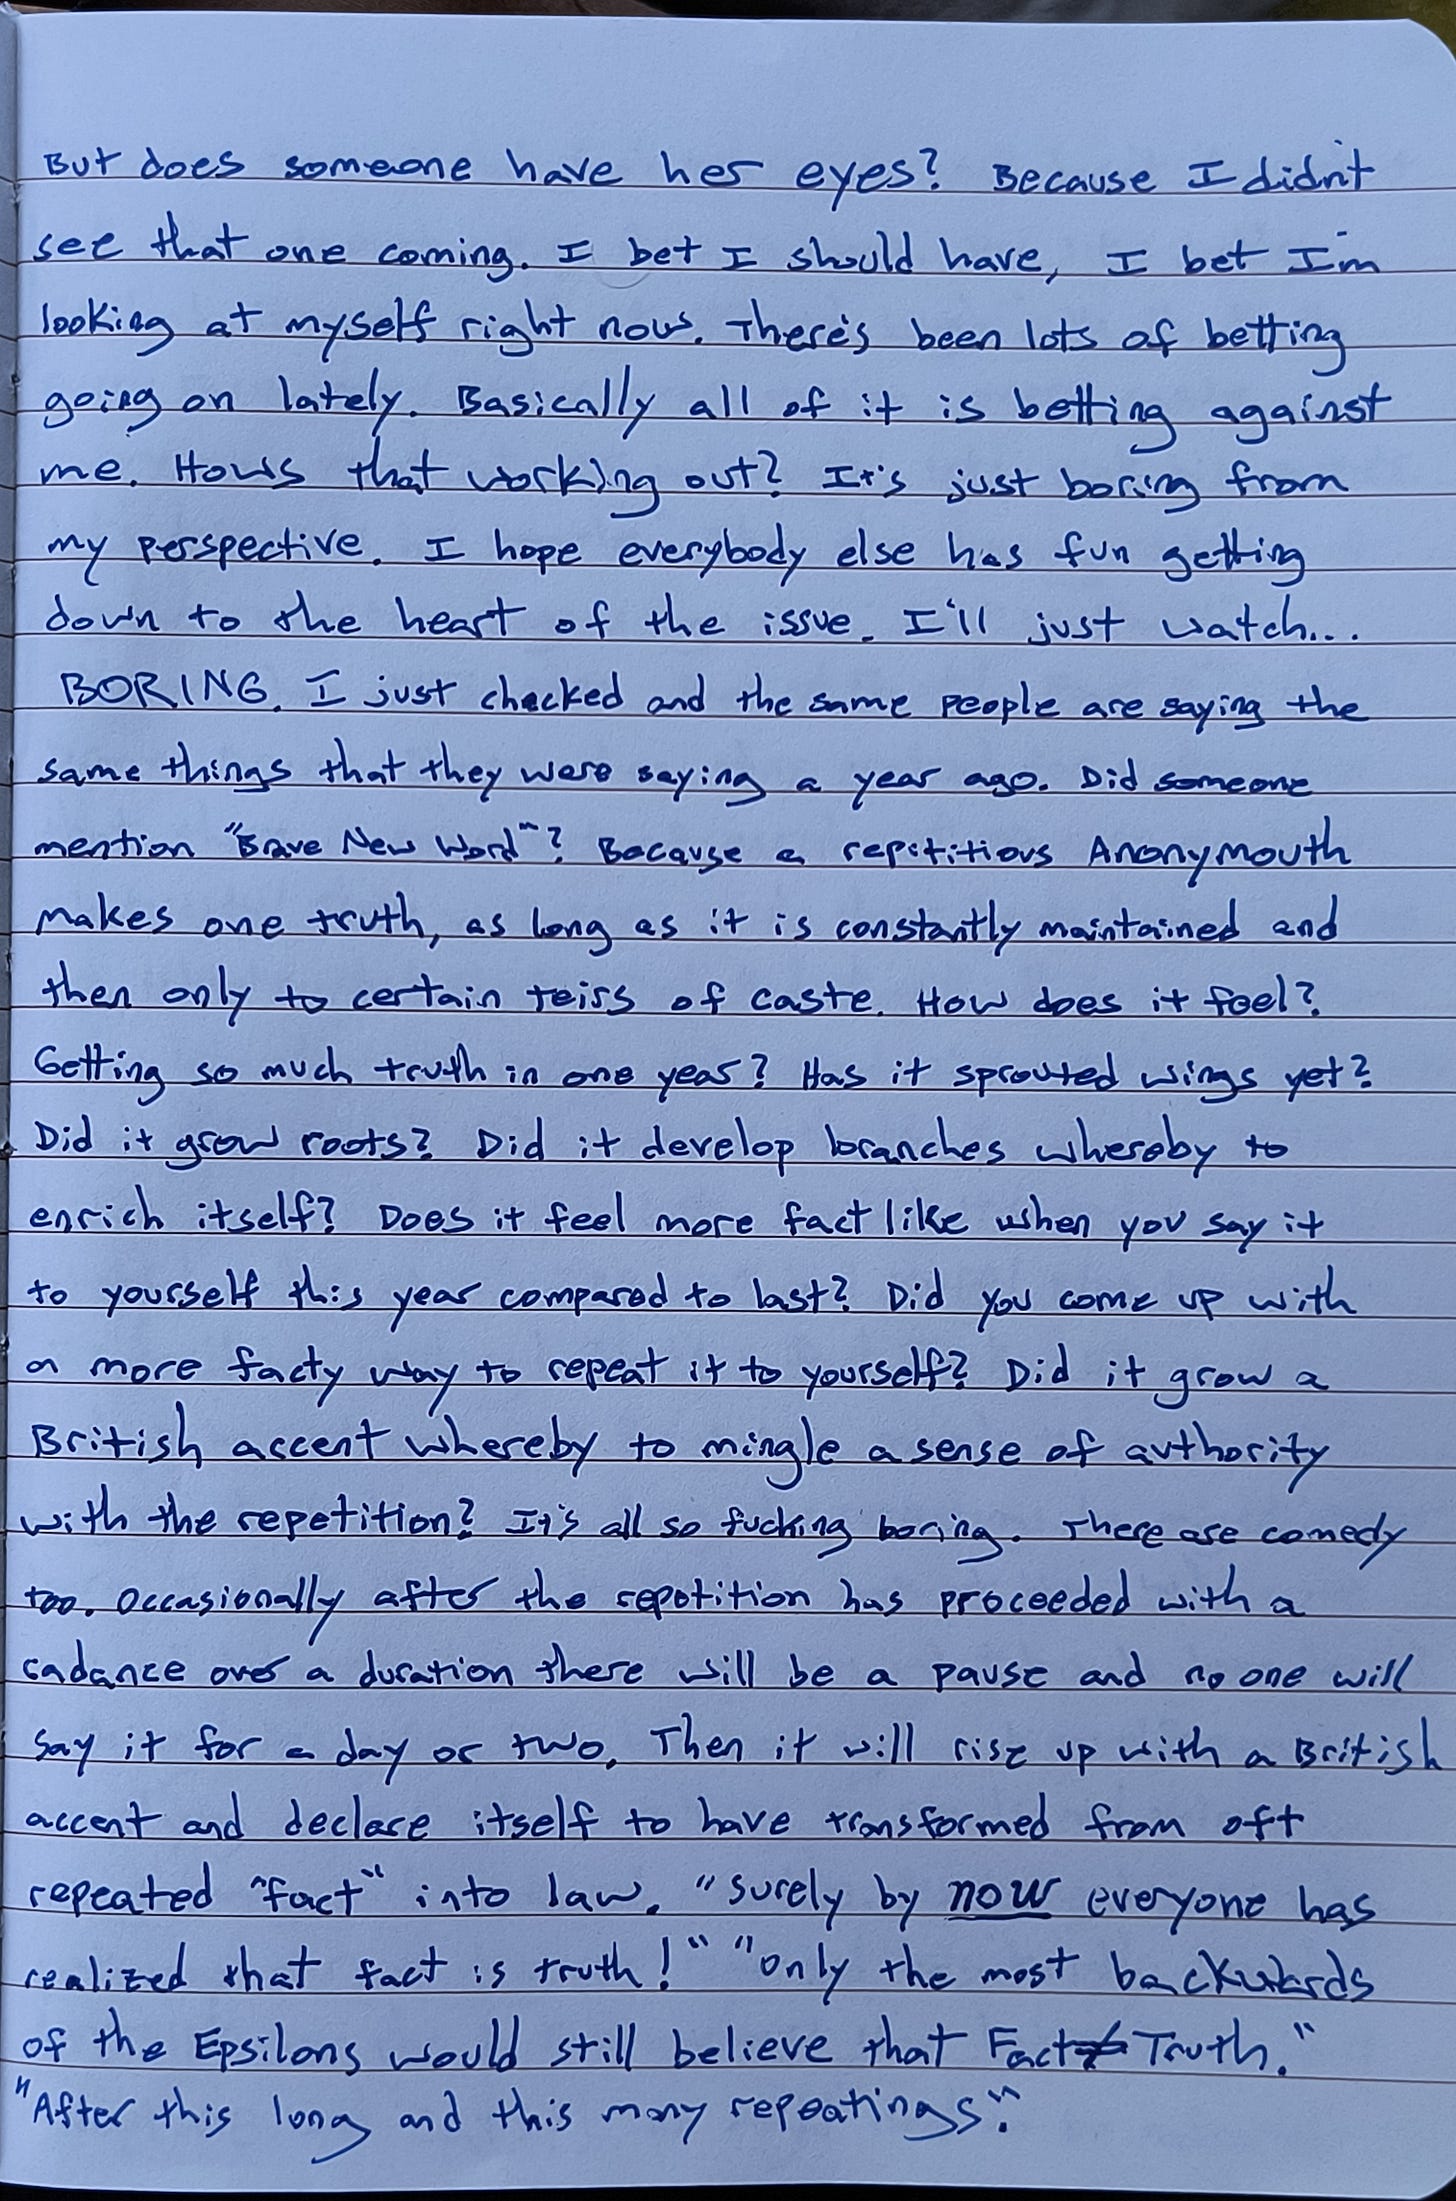 But does someone have her eyes? Because I didn't
see that one coming. I bet I should have, I bet I'm
looking at myself right now. There's been lots of betting
going on lately. Basically all of it is betting against
me. Hows that working out? It's just boring from
my perspective. I hope everybody else has fun getting
down to the heart of the issue. I'll just watch...
BORING. I just checked and the same people are saying the
same things that they were saying a year ago. Did someone
mention "Brave New Word"? Because a repetitious Anonymouth
makes one truth, as long as it is constantly maintained and
then only to certain teirs of caste. How does it feel?
Getting so much truth in one year? Has it sprouted wings yet?
Did it grow roots? Did it develop branches whereby to
enrich itself? Does it feel more fact like when you say it
to yourself this year compared to last? Did you come up with
a more facty way to repeat it to yourself? Did it grow a
British accent whereby to mingle a sense of authority
with the repetition? It's all so fucking boring. There are comedy
too. Occasionally after the repetition has proceeded with a
cadance over a duration there will be a pause and no one will
say it for a day or two. Then it will rise up with a British
accent and declare itself to have transformed from oft
repeated "fact" into law. "Surely by now everyone has
realized that fact is truth!" "Only the most backwards
of the Epsilons would still believe that Fact ≠ Truth."
"After this long and this many repeatings."